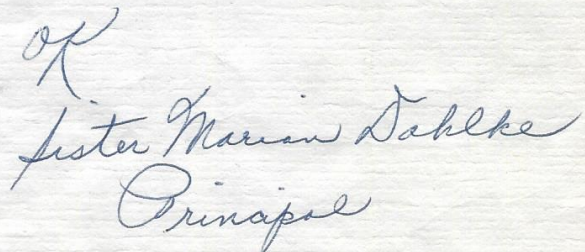 OK
Sister Marian Dahlke
Principal